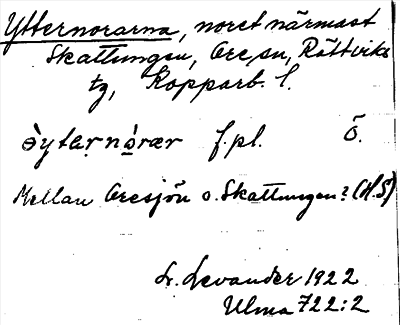 Ytternorarna, noret närmast
Skattungen, Ore sn, Rättviks
tg, Kopparb. l.
òytaṛnò̤rær f.pl. Ö.
Mellan Oresjön o. Skattungen? (H.S)
L. Levander 1922
Ulma 722:2